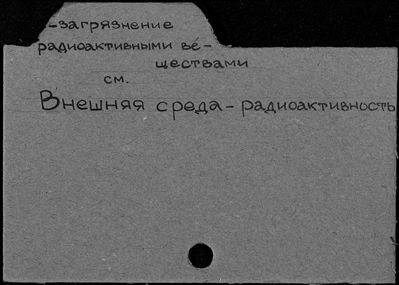 -загрязнение
радиоактивными ве-
ществами
см.
Внешняя среда - радиоактивность